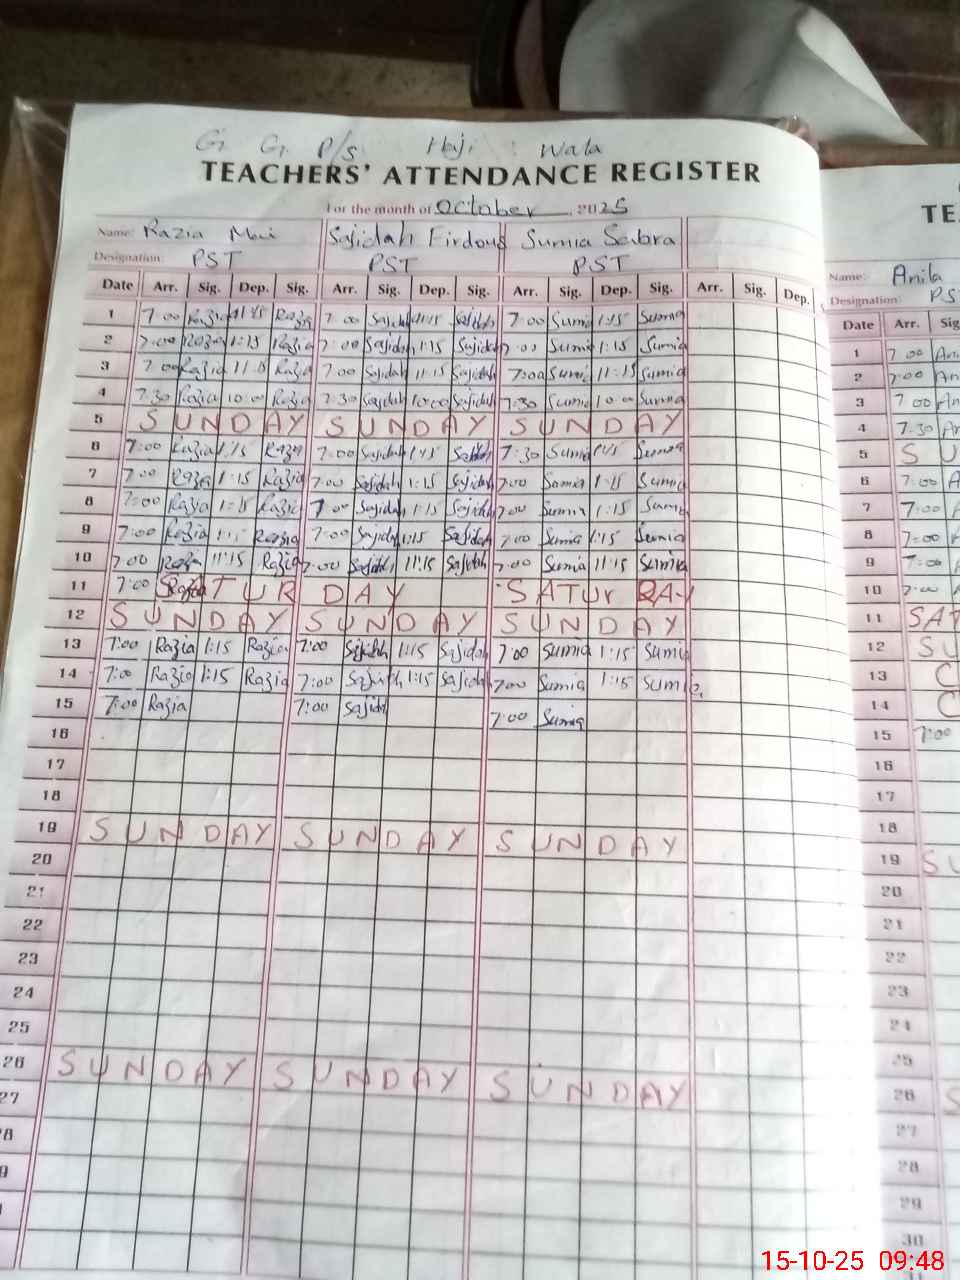 G. G. P/S Haji Wala
TEACHERS' ATTENDANCE REGISTER
For the month of October 2025
Name: Razia Mai Sajidah Firdous Sumia Sabra
Designation: PST PST PST
Date Arr. Sig. Dep. Sig. Arr. Sig. Dep. Sig. Arr. Sig. Dep. Sig. Arr. Sig. Dep.
1 7:00 Razia 11:15 Razia 7:00 Sajidah 11:15 Sajidah 7:00 Sumia 1:15 Sumia
2 7:00 Razia 1:15 Razia 7:00 Sajidah 1:15 Sajidah 7:00 Sumia 1:15 Sumia
3 7:00 Razia 11:15 Razia 7:00 Sajidah 11:15 Sajidah 7:00 Sumia 11:15 Sumia
4 7:30 Razia 10:00 Razia 7:30 Sajidah 10:00 Sajidah 7:30 Sumia 10:00 Sumia
5 SUNDAY SUNDAY SUNDAY
6 7:00 Razia 1:15 Razia 7:00 Sajidah 1:15 Sajidah 7:30 Sumia 1:15 Sumia
7 7:00 Razia 1:15 Razia 7:00 Sajidah 1:15 Sajidah 7:00 Sumia 1:15 Sumia
8 7:00 Razia 1:15 Razia 7:00 Sajidah 1:15 Sajidah 7:00 Sumia 1:15 Sumia
9 7:00 Razia Razia 7:00 Sajidah 1:15 Sajidah 7:00 Sumia 1:15 Sumia
10 7:00 Razia 11:15 Razia 7:00 Sajidah 11:15 Sajidah 7:00 Sumia 11:15 Sumia
11 7:00 SATURDAY SATUrDAY
12 SUNDAY SUNDAY SUNDAY
13 7:00 Razia 1:15 Razia 7:00 Sajidah 1:15 Sajidah 7:00 Sumia 1:15 Sumia
14 7:00 Razia 1:15 Razia 7:00 Sajidah 1:15 Sajidah 7:00 Sumia 1:15 Sumia
15 7:00 Razia 7:00 Sajidah 7:00 Sumia
16
17
18
19 SUNDAY SUNDAY SUNDAY
20
21
22
23
24
25
26 SUNDAY SUNDAY SUNDAY
27
28
9
TE
Name: Anila
Designation: PS
Date Arr. Sig
1 7:00 An
2 7:00 An
3 7:00 An
4 7:30 An
5 S U
6 7:00 A
7 7:00
8 7:00
9 7:00
10 7:00
11 SAT
12 SU
13 C
14 C
15 7:00
16
17
18
19 SU
20
21
22
23
24
25
26 S
27
28
29
30
15-10-25 09:48